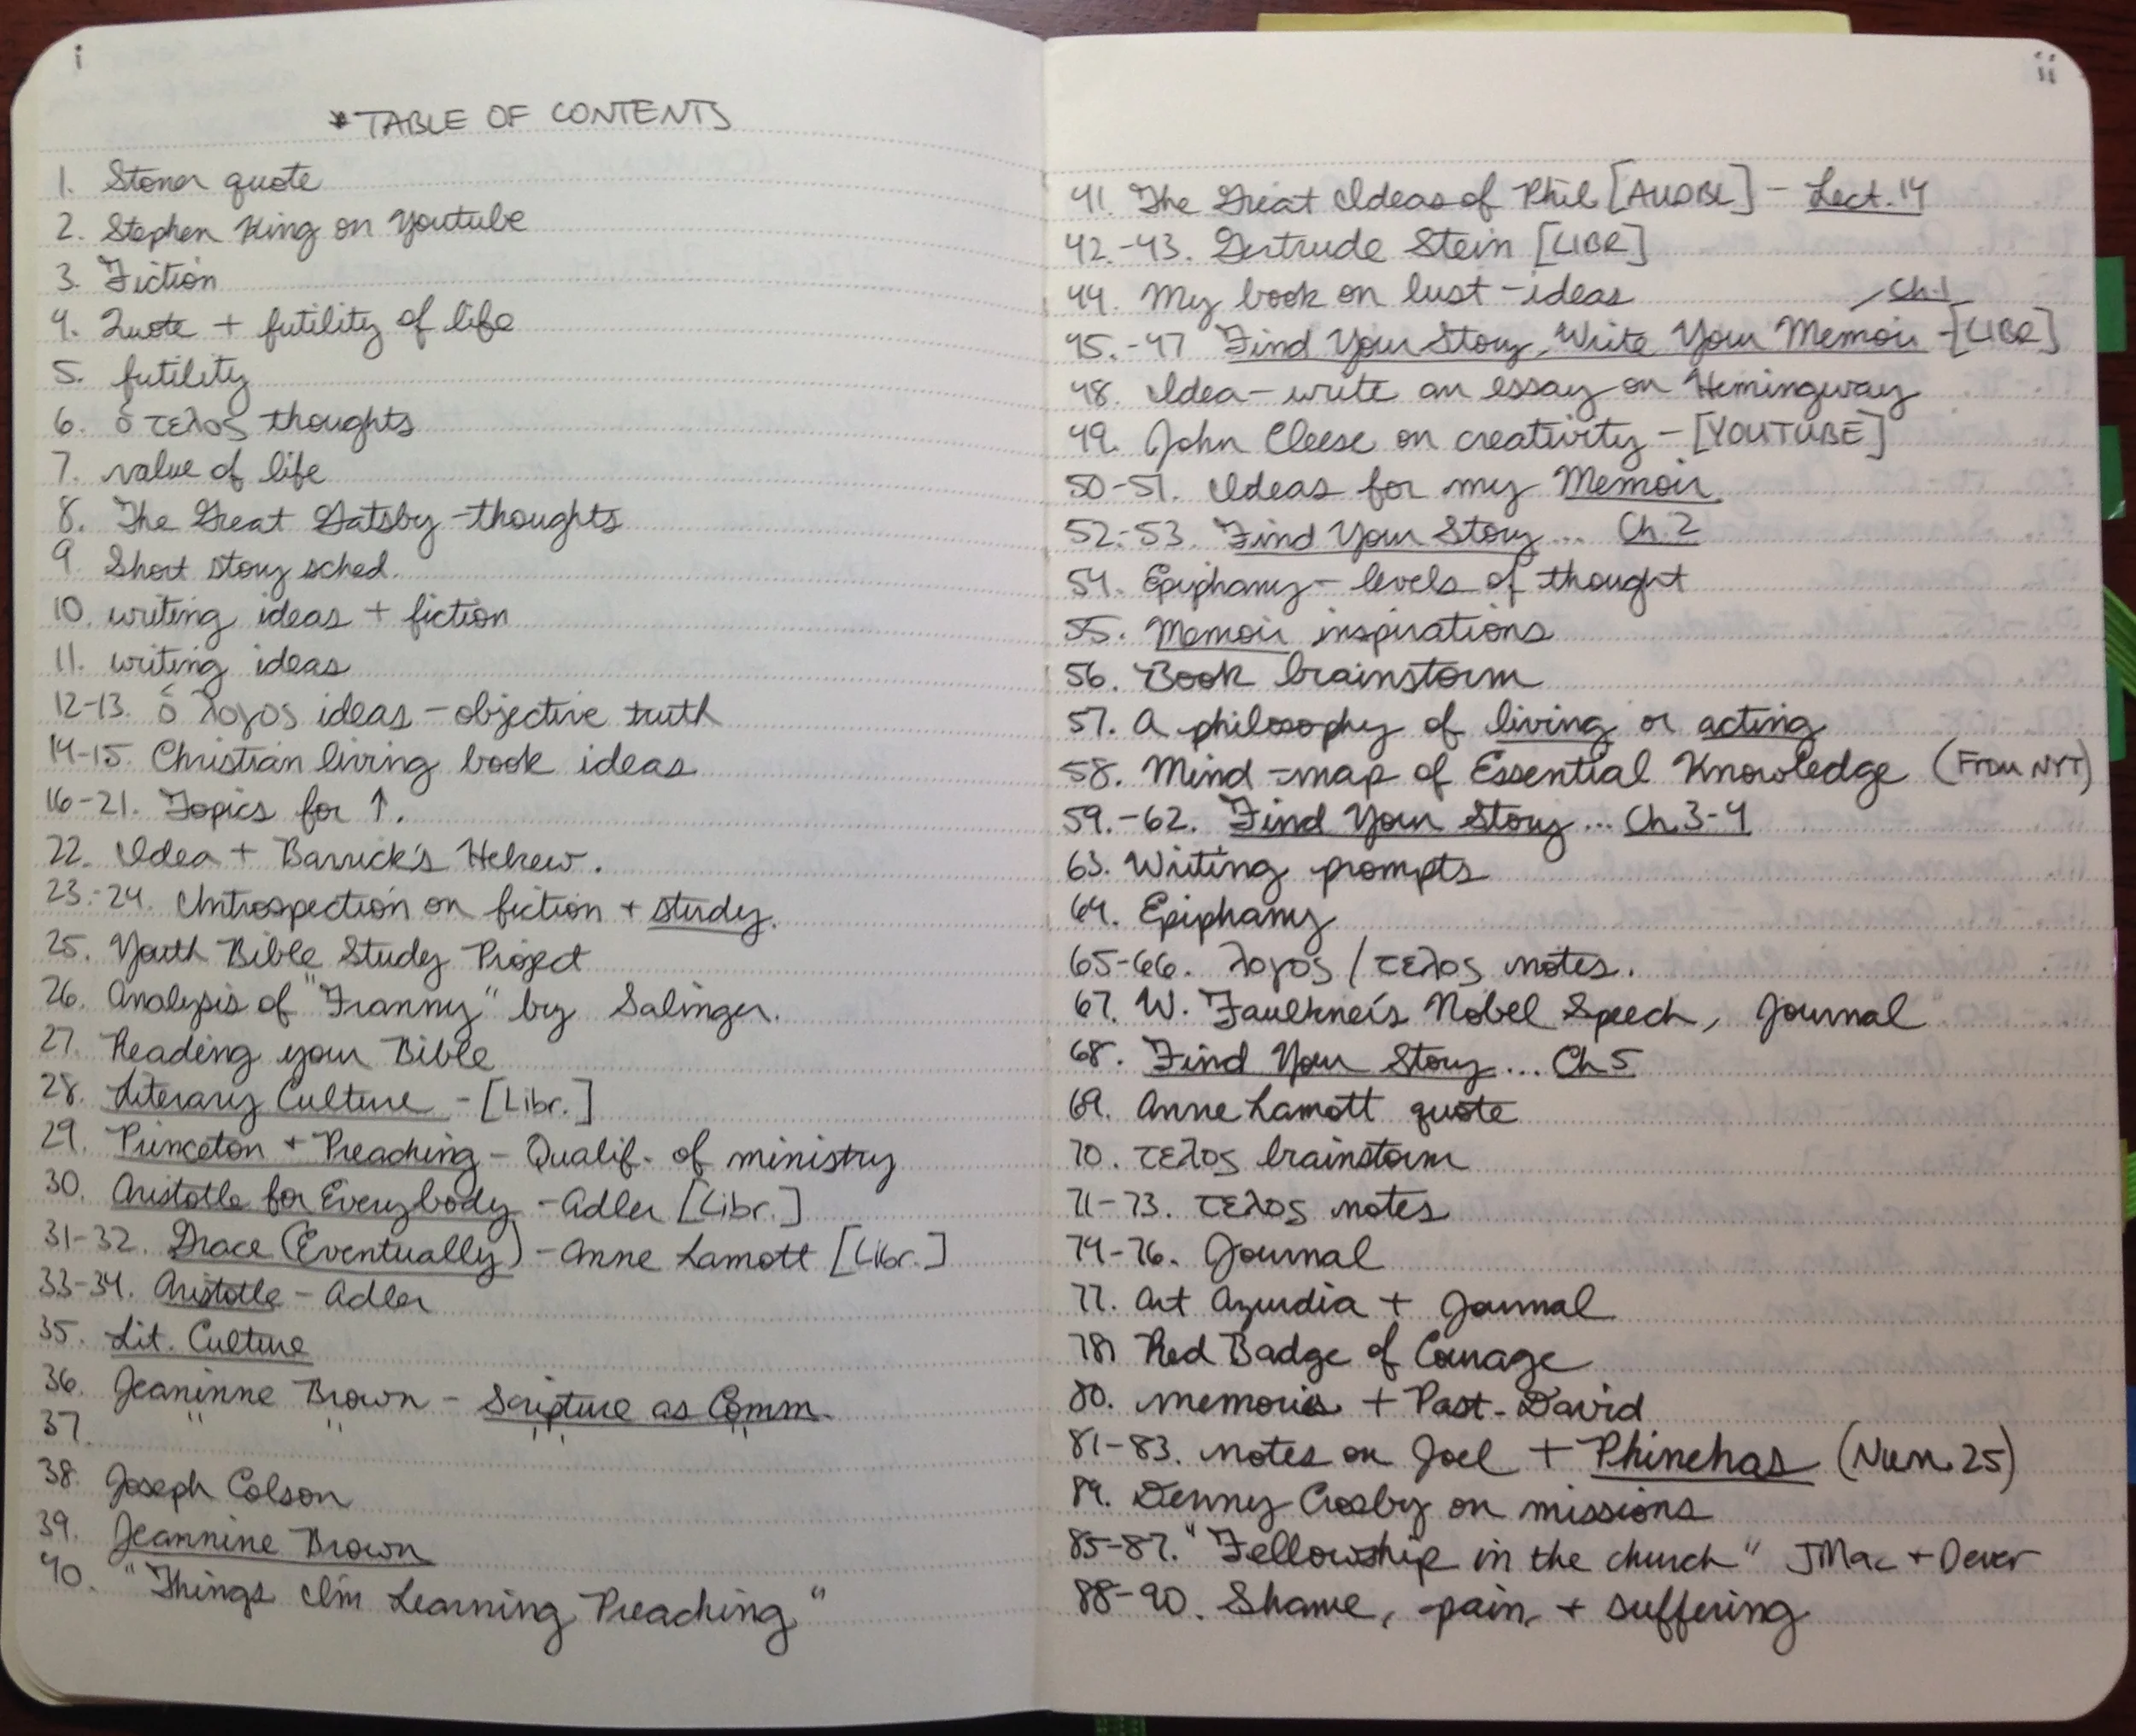 i
*TABLE OF CONTENTS
1. Stoner quote
2. Stephen King on Youtube
3. Fiction
4. Quote + futility of life
5. futility
6. ὁ τελος thoughts
7. value of life
8. The Great Gatsby - thoughts
9 Short story sched.
10. writing ideas + fiction
11. writing ideas
12-13. ὁ λογος ideas - objective truth
14-15. Christian living book ideas
16-21. Topics for ↑.
22. Idea + Barrick's Hebrew.
23.-24. Introspection on fiction + study.
25. Youth Bible Study Project
26. Analysis of "Franny" by Salinger.
27. Reading your Bible
28. Literary Culture - [Libr.]
29. Princeton + Preaching - Qualif. of ministry
30. Aristotle for Everybody - Adler [Libr.]
31-32. Grace (Eventually) - Anne Lamott [Libr.]
33-34. Aristotle - Adler
35. Lit. Culture
36. Jeaninne Brown - Scripture as Comm.
37. " " " " "
38. Joseph Colson
39. Jeannine Brown
40. "Things I'm Learning Preaching"
ii
41. The Great Ideas of Phil [AUDBL] - Lect. 14
42.-43. Gertrude Stein [LIBR]
44. My book on lust - ideas
Ch. 1
45.-47 Find Your Story, Write Your Memoir - [LIBR]
48. Idea - write an essay on Hemingway
49. John Cleese on creativity - [YOUTUBE]
50-51. Ideas for my Memoir
52.-53. Find Your Story... Ch. 2
54. Epiphany - levels of thought
55. Memoir inspirations
56. Book brainstorm
57. A philosophy of living or acting
58. Mind-map of Essential Knowledge (From NYT)
59.-62. Find Your Story... Ch. 3-4
63. Writing prompts
64. Epiphany
65-66. λογος / τελος notes.
67. W. Faulkner's Nobel Speech, Journal
68. Find Your Story... Ch 5
69. Anne Lamott quote
70. τελος brainstorm
71-73. τελος notes
74-76. Journal
77. Art Azurdia + Journal
78. Red Badge of Courage
80. Memories + Past. David
81-83. notes on Joel + Phinehas (Num. 25)
84. Denny Crosby on missions
85-87. "Fellowship in the church" JMac + Dever
88-90. Shame, pain, + suffering